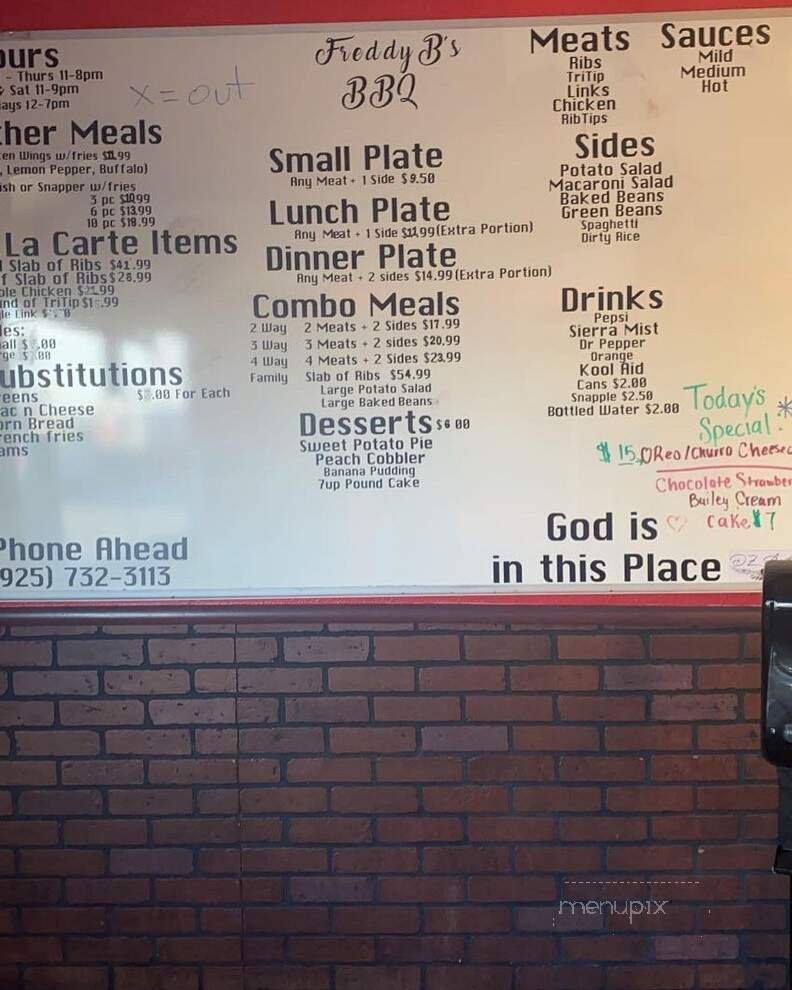 ours
- Thurs 11-8pm
Sat 11-9pm
ays 12-7pm
x = out
her Meals
en Wings w/fries $11.99
, Lemon Pepper, Buffalo)
ish or Snapper w/fries
3 pc $10.99
6 pc $13.99
10 pc $18.99
La Carte Items
Slab of Ribs $41.99
f Slab of Ribs $28.99
ole Chicken $21.99
nd of TriTip
le Link
es:
all
ge
ubstitutions
eens
.00 For Each
ac n Cheese
orn Bread
ench fries
ams
Phone Ahead
925) 732-3113
Freddy B's
BBQ
Small Plate
Any Meat + 1 Side $9.50
Lunch Plate
Any Meat + 1 Side $11.99 (Extra Portion)
Dinner Plate
Any Meat + 2 sides $14.99 (Extra Portion)
Combo Meals
2 Way 2 Meats + 2 Sides $17.99
3 Way 3 Meats + 2 sides $20.99
4 Way 4 Meats + 2 Sides $23.99
Family Slab of Ribs $54.99
Large Potato Salad
Large Baked Beans
Desserts $6 00
Sweet Potato Pie
Peach Cobbler
Banana Pudding
7up Pound Cake
Meats
Ribs
TriTip
Links
Chicken
RibTips
Sauces
Mild
Medium
Hot
Sides
Potato Salad
Macaroni Salad
Baked Beans
Green Beans
Spaghetti
Dirty Rice
Drinks
Pepsi
Sierra Mist
Dr Pepper
Orange
Kool Aid
Cans $2.00
Snapple $2.50
Bottled Water $2.00
Today's *
Special.
$15 OReo/Churro Cheesec
Chocolate Strawber
Bailey Cream
Cake $7
God is
in this Place
menupix